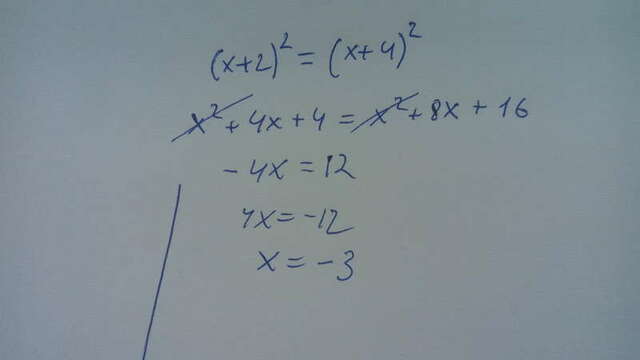 (x+2)² = (x+4)²
x² + 4x + 4 = x² + 8x + 16
- 4x = 12
4x = -12
x = -3